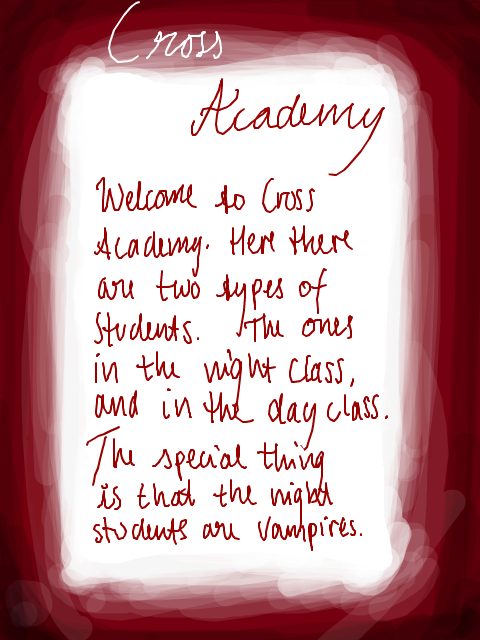 Cross
Academy
Welcome to Cross
Academy. Here there
are two types of
students. The ones
in the night class,
and in the day class.
The special thing
is that the night
students are vampires.